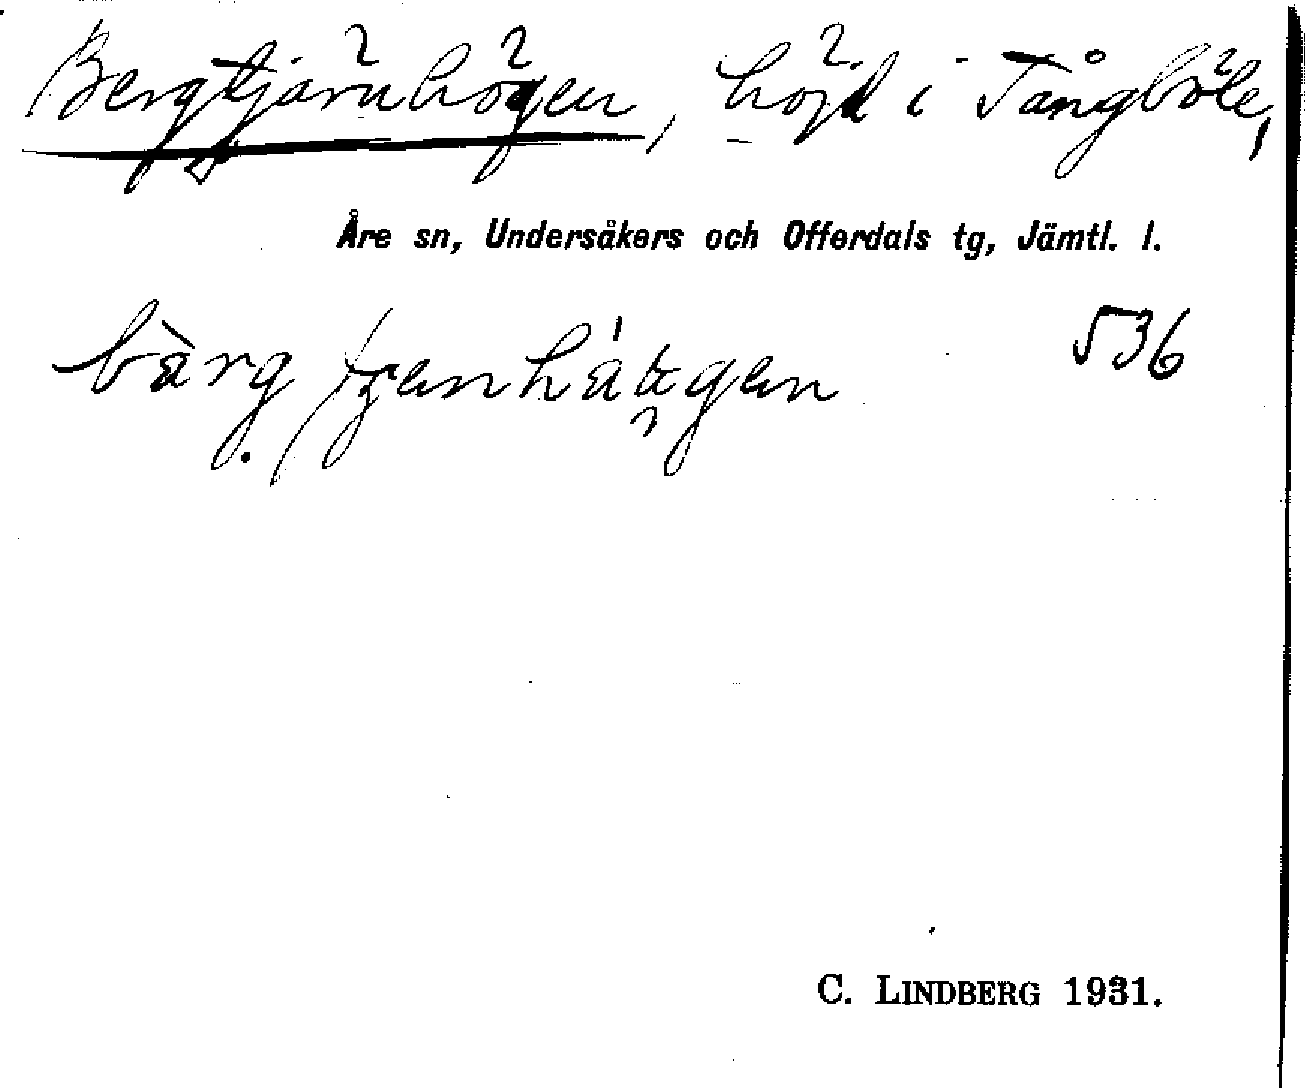 Bergtjärnhögen, höjd i Tångböle,
Åre sn, Undersåkers och Offerdals tg, Jämtl. l.
536
C. LINDBERG 1931.